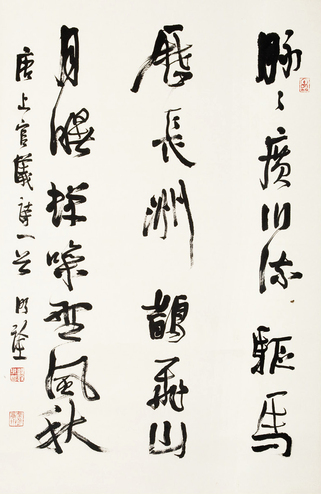 脉々廣川流驅馬
歷長洲鵲飛山
月曙蟬噪野風秋
唐上官儀詩一首